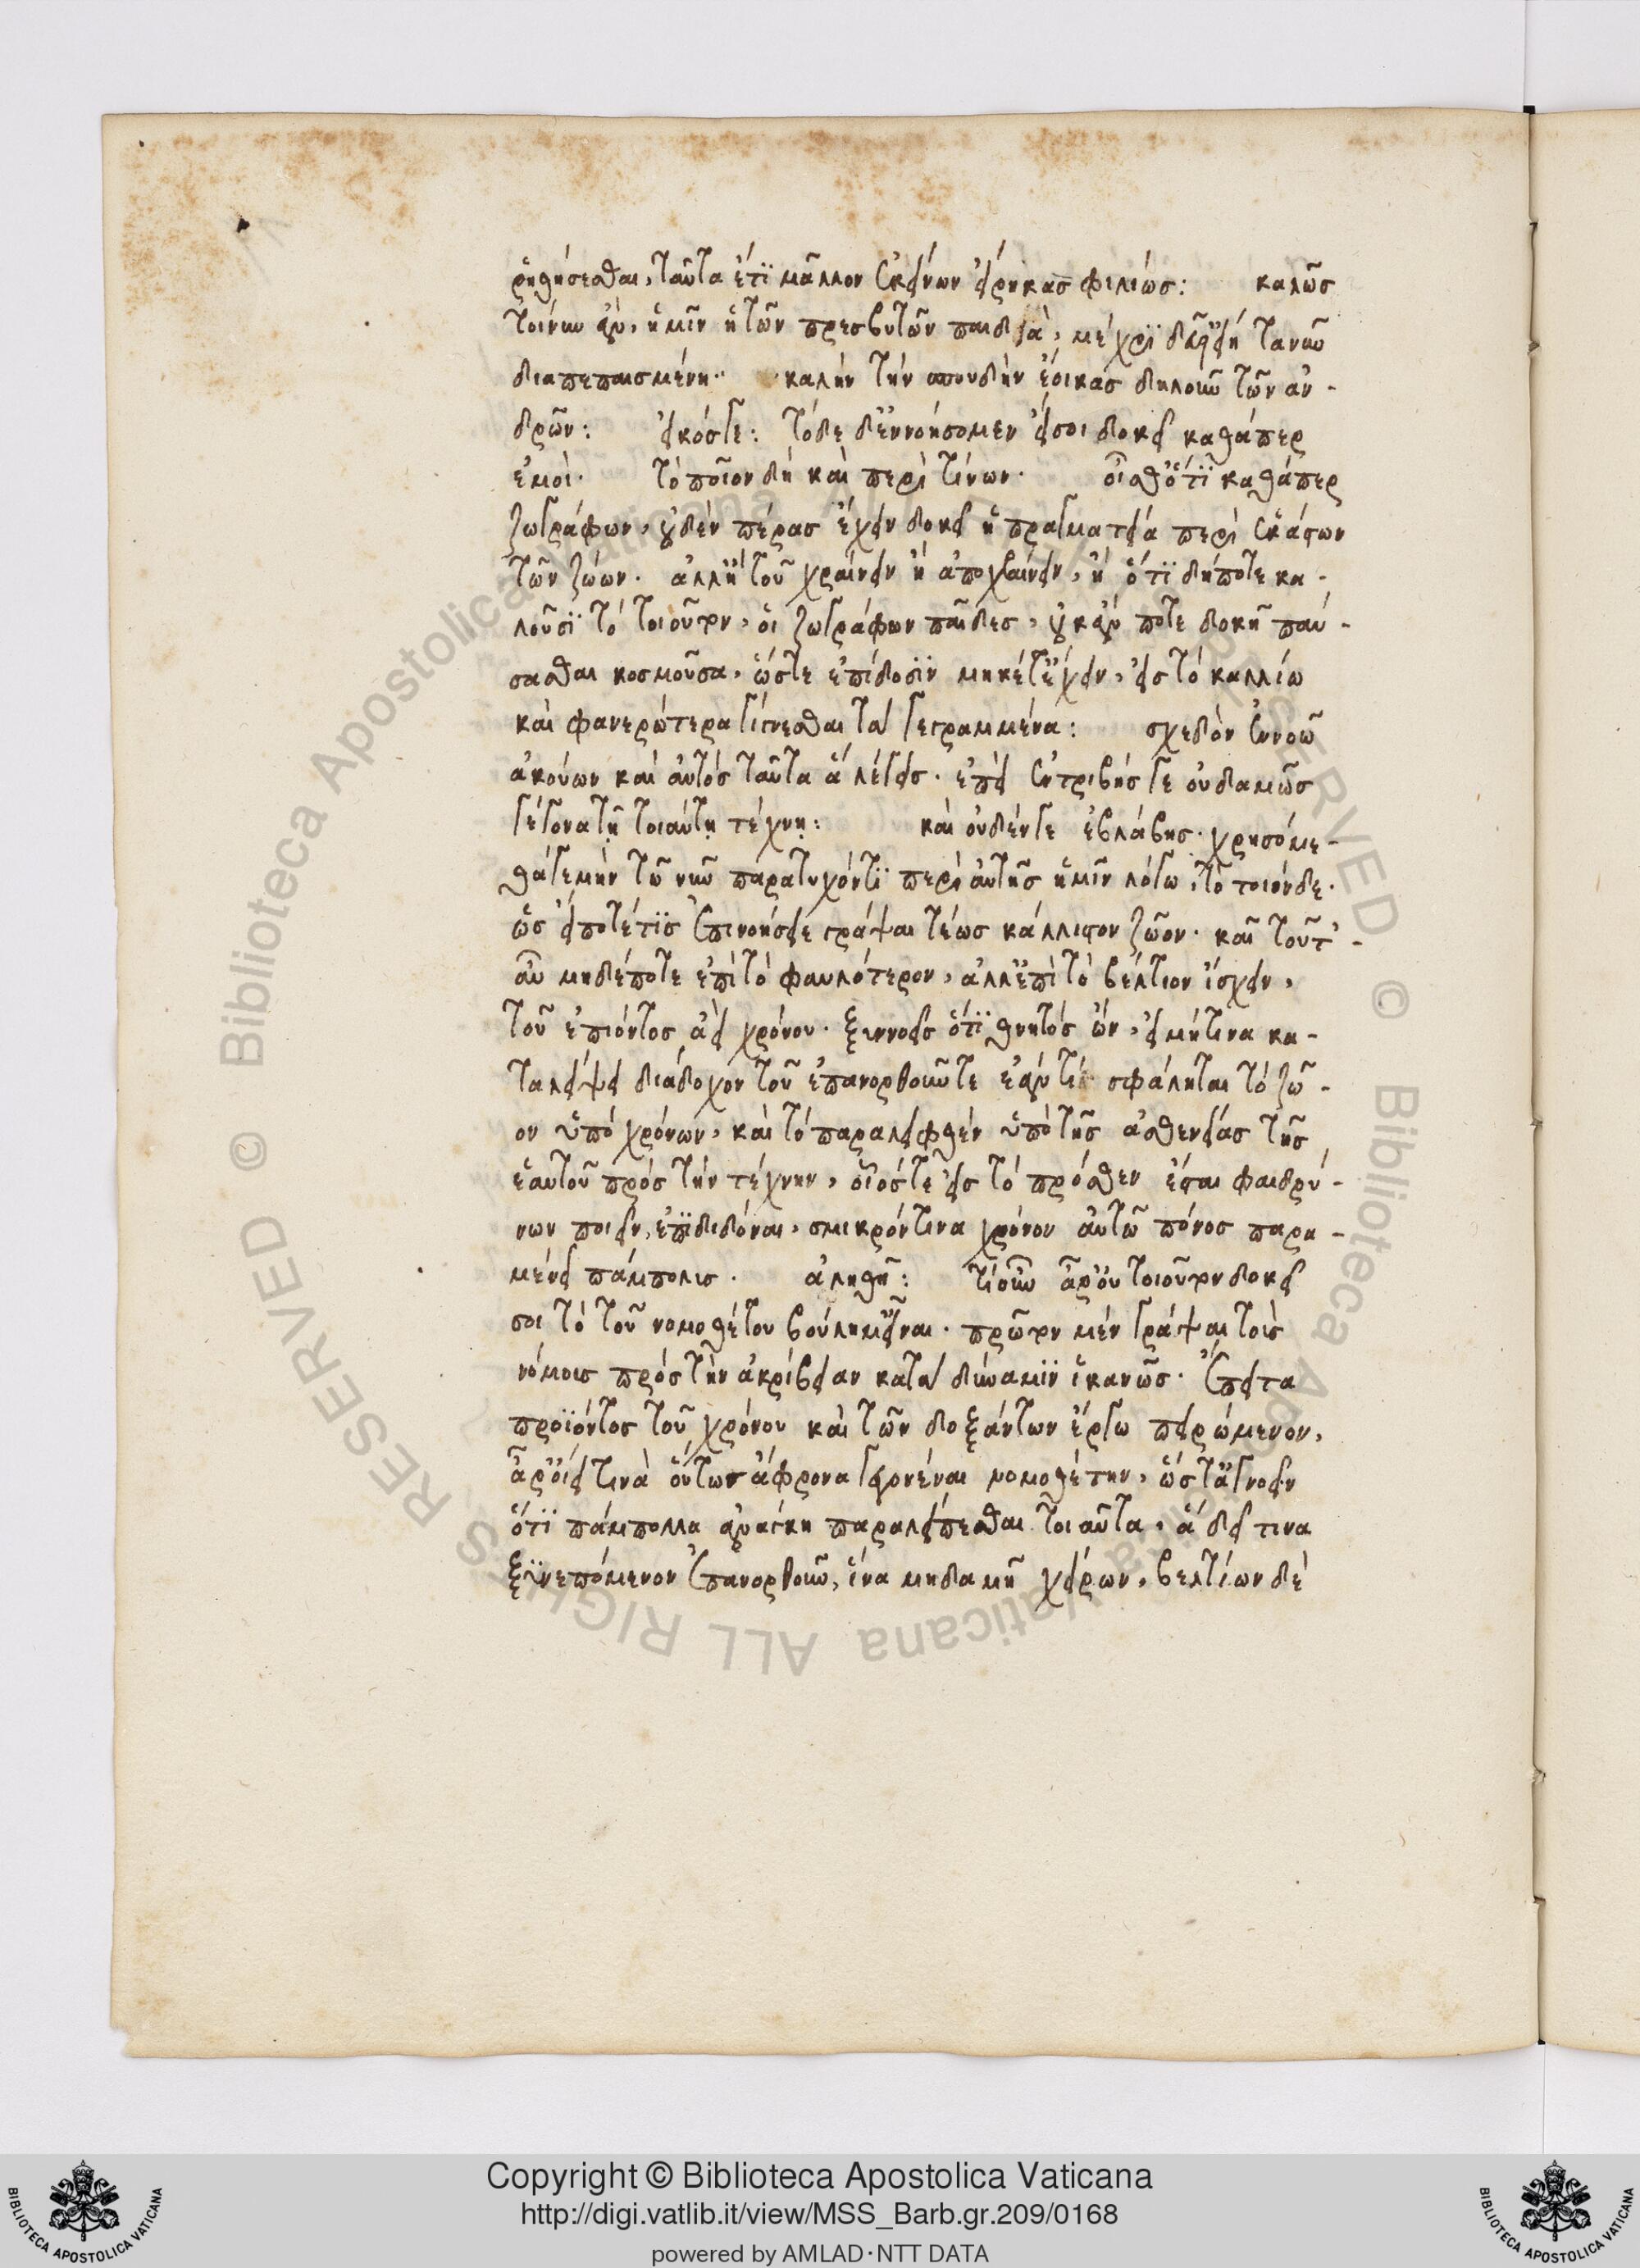 ῥηθήσεσθαι, ταῦτα ἔτϊ μᾶλλον ἐκείνων εἴρηκας φιλίως: καλῶς
τοίνυν ἂν, ἡμῖν ἡ τῶν πρεσβυτῶν παιδιὰ, μέχρϊ δεῦρ' εἴη τανῦν
διαπεπαισμένη· καλὴν τὴν σπουδὴν ἔοικας δηλοῦν τῶν ἀν-
δρῶν: εἰκόσγε: τόδε δ' ἐννοήσομεν εἴ σοι δοκεῖ καθάπερ
ἐμοὶ· τὸ ποῖον δὴ καὶ περὶ τίνων· οἶσθ' ὅτϊ καθάπερ
ζωγράφων, οὐδὲν πέρας ἔχειν δοκεῖ ἡ πραγματεία περὶ ἑκάστων
τῶν ζώων· ἀλλ' ἢ τοῦ χραίνειν ἢ ἀποχραίνειν, ἢ ὅτϊ δήποτε κα-
λοῦσϊ τὸ τοιοῦτον, οἱ ζωγράφων παῖδες, οὐκ ἄν ποτε δοκῇ παύ-
σασθαι κοσμοῦσα, ὥστε ἐπίδοσϊν μηκέτ' ἔχειν, εἰς τὸ καλλίω
καὶ φανερώτερα γίγνεσθαι τὰ γεγραμμένα: σχεδὸν ἐννοῶ
ἀκούων καὶ αὐτὸς ταῦτα ἃ λέγεις· ἐπεὶ ἐντριβής γε οὐδαμῶς
γέγονα τῇ τοιαύτῃ τέχνῃ: καὶ οὐδέν γε ἐβλάβης· χρησόμε-
θά γε μὴν τῷ νῦν παρατυχόντϊ περὶ αὐτῆς ἡμῖν λόγῳ, τὸ τοιόνδε·
ὡς εἴ ποτέ τϊς ἐπινοήσειε γράψαι τέως κάλλιστον ζῶον· καὶ τοῦτ'
αὖ μηδέποτε ἐπὶ τὸ φαυλότερον, ἀλλ' ἐπὶ τὸ βέλτιον ἴσχειν,
τοῦ ἐπιόντος ἀεὶ χρόνου· ξυννοεῖς ὅτϊ θνητὸς ὢν, εἰ μή τινα κα-
ταλείψει διάδοχον τοῦ ἐπανορθοῦν τε ἐάν τι σφάληται τὸ ζῶ-
ον ὑπὸ χρόνων, καὶ τὸ παραλειφθὲν ὑπὸ τῆς ἀσθενείας τῆς
ἑαυτοῦ πρὸς τὴν τέχνην, οἷός τε εἰς τὸ πρόσθεν ἔσται φαιδρύ-
νων ποιεῖν, ἐπϊδιδόναι, σμικρόν τινα χρόνον αὐτῷ πόνος παρα-
μένει πάμπολυς· ἀληθῆ: τί οὖν ἆρ' οὐ τοιοῦτον δοκεῖ
σοι τὸ τοῦ νομοθέτου βούλημ' εἶναι· πρῶτον μὲν γράψαι τοὺς
νόμους πρὸς τὴν ἀκρίβειαν κατὰ δύναμϊν ἱκανῶς· ἔπειτα
προϊόντος τοῦ χρόνου καὶ τῶν δοξάντων ἔργῳ πειρώμενον,
ἆρ' οἴει τινὰ οὕτως ἄφρονα γεγονέναι νομοθέτην, ὥστ' ἀγνοεῖν
ὅτϊ πάμπολλα ἀνάγκη παραλείπεσθαι τοιαῦτα, ἃ δεῖ τινα
ξυνεπόμενον ἐπανορθοῦν, ἵνα μηδαμῇ χείρων, βελτίων δὲ
Copyright © Biblioteca Apostolica Vaticana
http://digi.vatlib.it/view/MSS_Barb.gr.209/0168
powered by AMLAD·NTT DATA